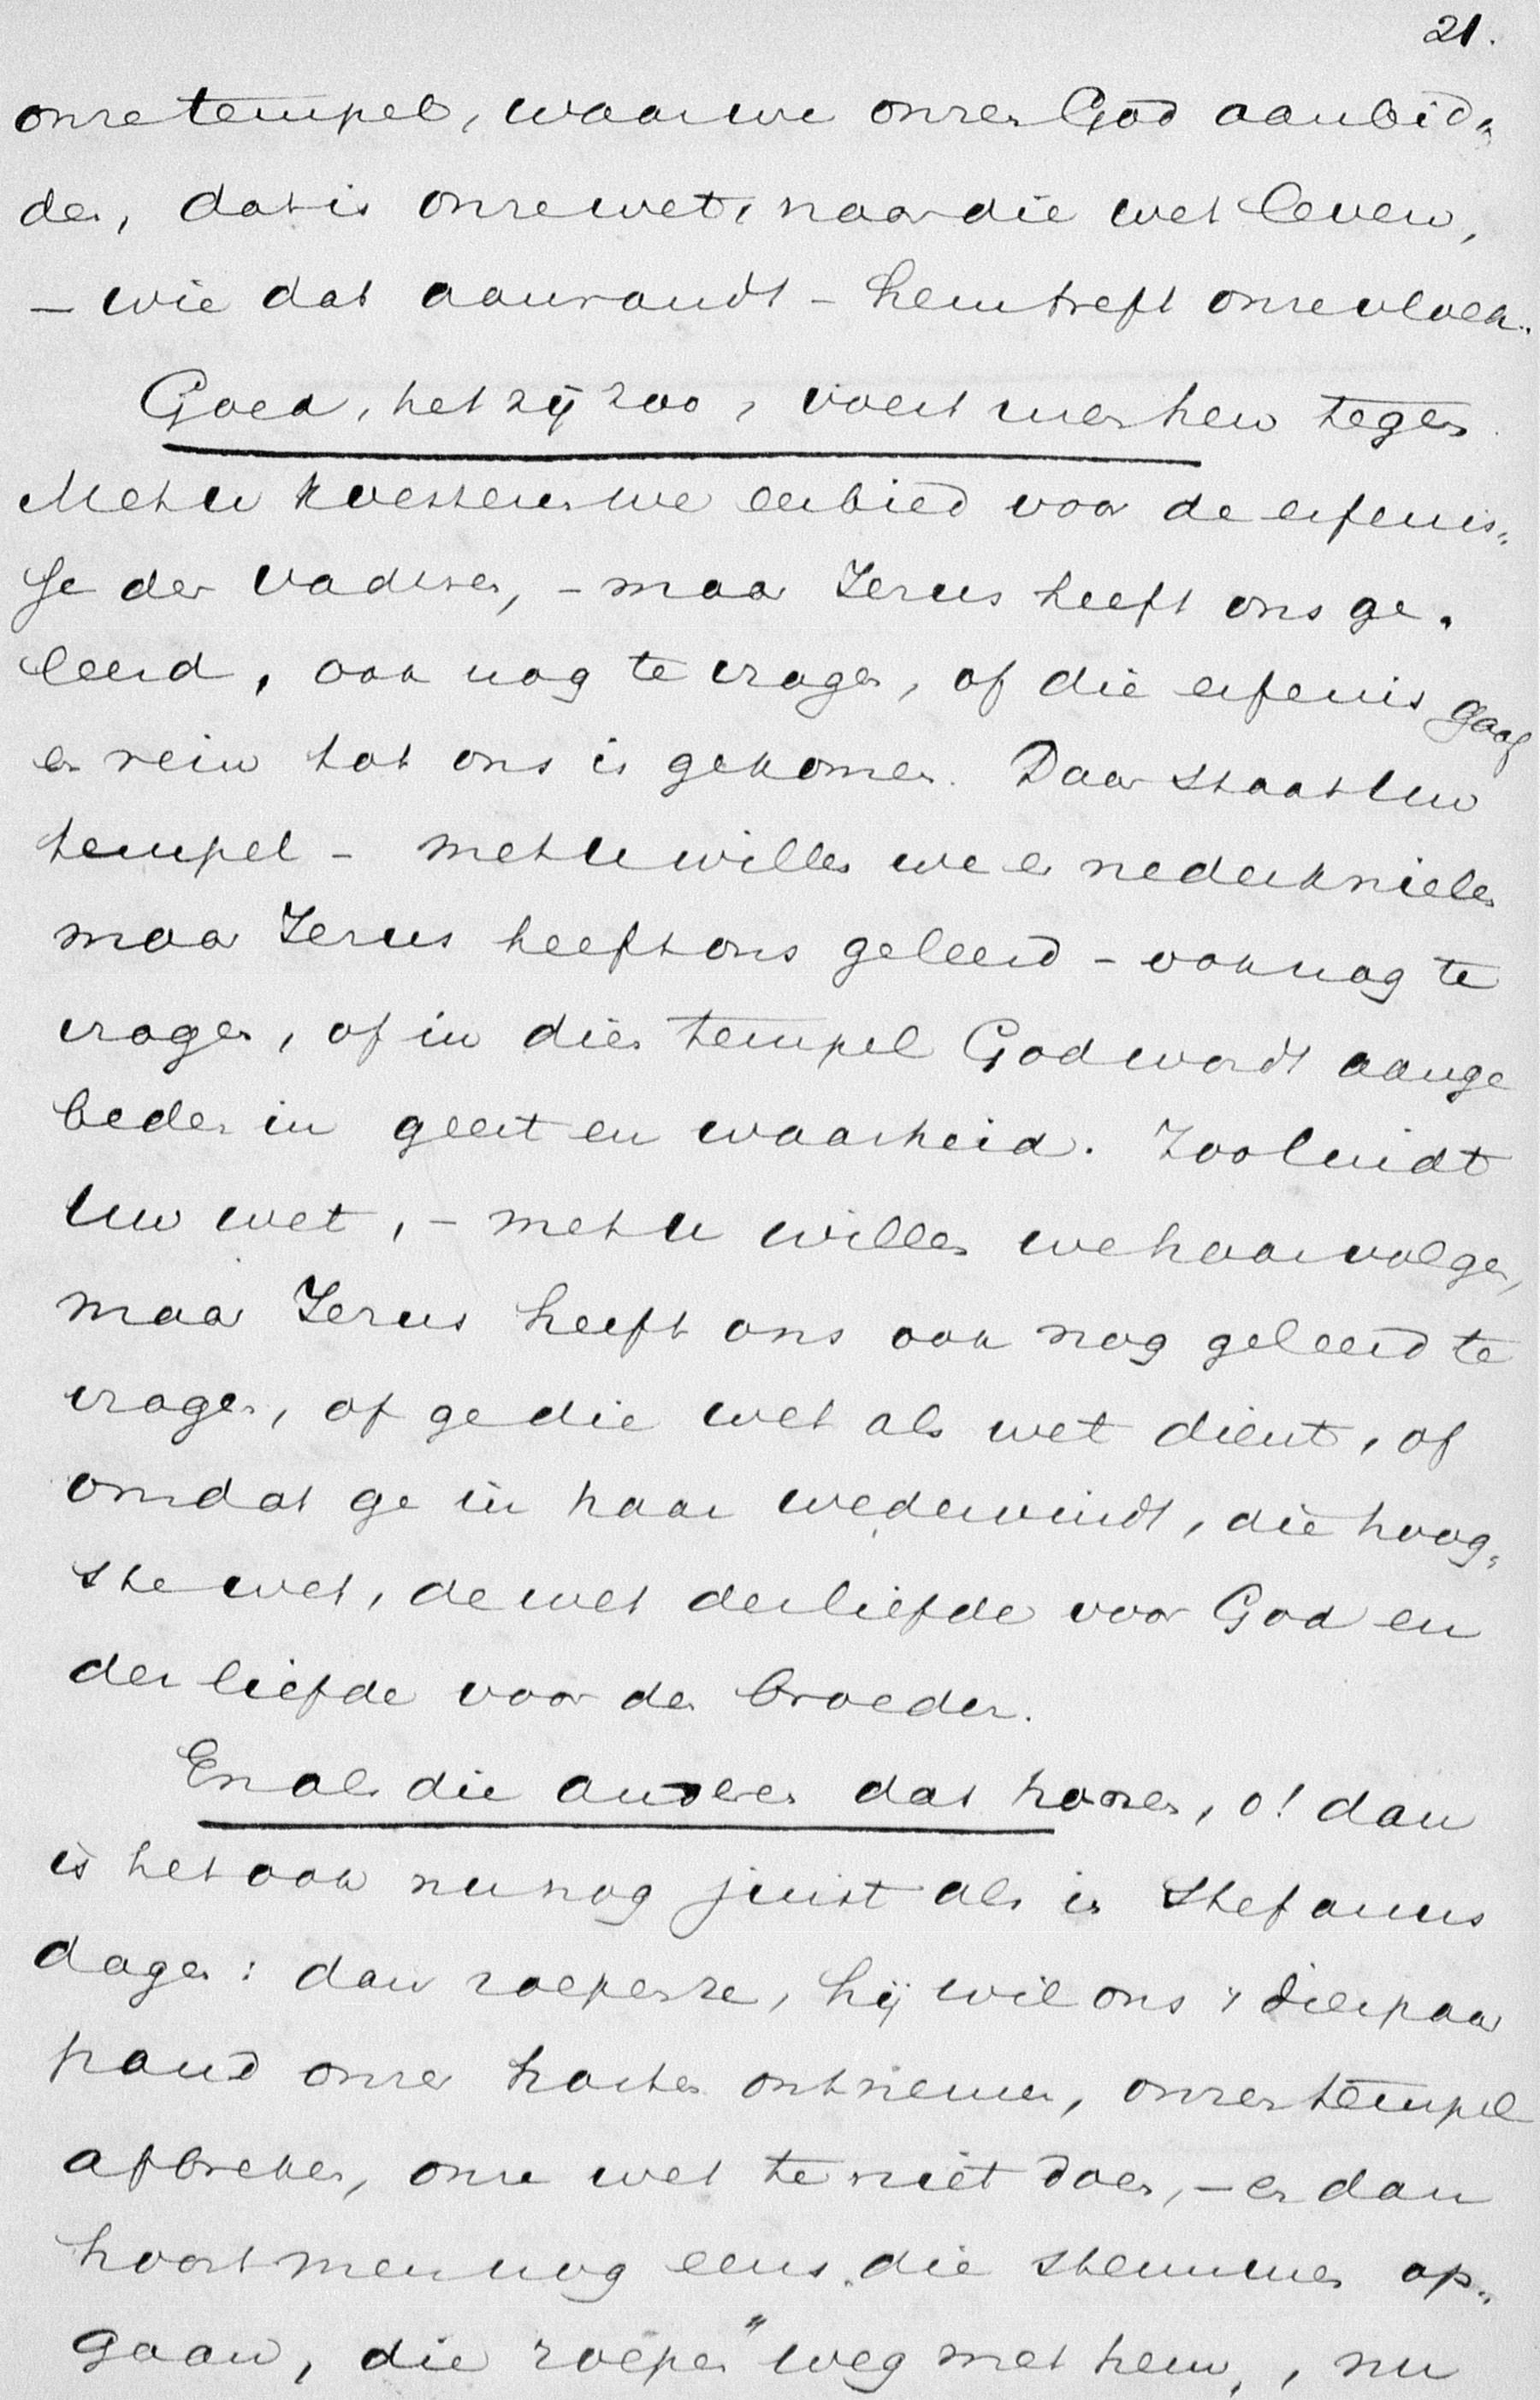 21.
onze tempel, waar we onzen God aanbid„
den, dat is onze wet, naar die wet leven,
– wie dat aanrandt – hem treft onze vloek„
Goed, het zij zoo, voert men hen tegen
Met u koesteren we eerbied voor de erfenis„
se der vaderen, – maar Jezus heeft ons ge„
leerd, ook nog te vragen, of die erfenis gaaf
en rein tot ons is gekomen. Daar staat Uw
tempel – met U willen we er nederknielen
maar Jezus heeft ons geleerd – ook nog te
vragen, of in dien tempel God wordt aange
beden in geest en waarheid. Zoo luidt
Uw wet, – met U willen we haar volgen,
maar Jezus heeft ons ook nog geleerd te
vragen, of ge die wet als wet dient, of
omdat ge in haar wedervindt, die hoog„
ste wet, de wet der liefde voor God en
der liefde voor de broeders.
En als die anderen dat hooren, o! dan
is het ook nu nog juist als in Stefanus
dagen: dan roepen ze, hij wil ons 't dierbaar
pand onzer harten ontnemen, onzen tempel
afbreken, onze wet te niet doen, – en dan
hoort men nog eens die stemmen op„
gaan, die roepen "weg met hem,, , nu